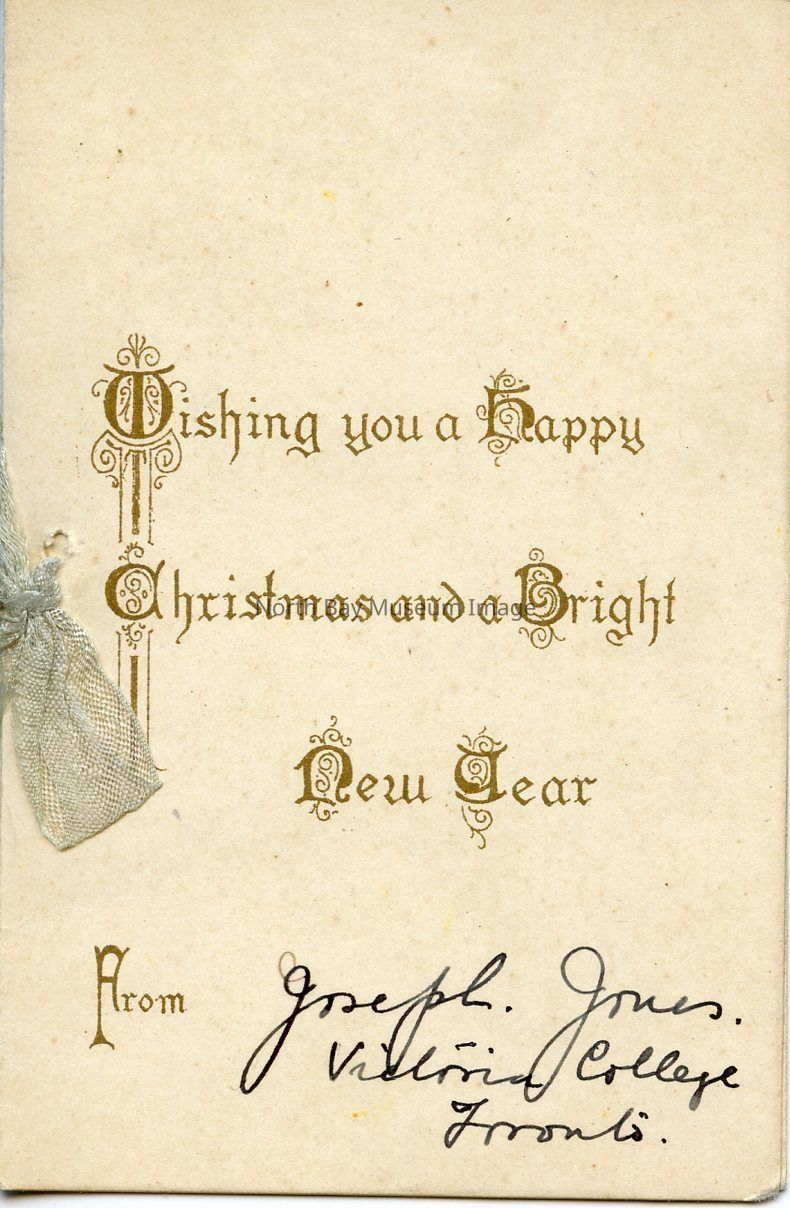 Wishing you a Happy
Christmas and a Bright
North Bay Museum Image
New Year
From Joseph. Jones.
Victoria College
Toronto.